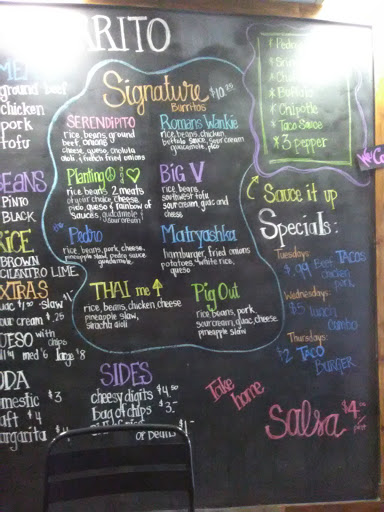 RRITO
ground beef
chicken
pork
tofu
BEANS
PINTO
BLACK
RICE
BROWN
CILANTRO LIME
EXTRAS
slaw
sour cream $.25
QUESO with chips
med $6 large $8
SODA
domestic $3
draft $4
margarita $4
Signature $10.00
Burritos
SERENDIPITO
rice, beans, ground
beef, onions
cheese, queso, cholula
aioli & french fried onions
Planting
rice beans 2 meats
of your choice, cheese,
queso & rainbow of
sauces, guacamole &
sour cream
Pedro
rice, beans, pork, cheese,
pineapple slaw, pedro sauce
guacamole
THAI me ↑
rice, beans, chicken, cheese
pineapple slaw,
siracha aioli
Romans Wankie
rice, beans, chicken,
buffalo sauce, sour cream
guacamole, plum
BIG V
rice, beans,
southwest tofu
sour cream, guac and
cheese
Matryashka
hamburger, fried onions
potatoes, white rice,
queso
Pig Out
rice, beans, pork,
sour cream, guac, cheese,
pineapple slaw
SIDES
cheesy digits $4.50
bag of chips $3.-
or beans $1-
* Pedro
* Buffalo
* Chipotle
* Taco Sauce
* 3 pepper
Sauce it up
Specials:
Tuesdays:
$.99 Beef TACOS
chicken
pork
Wednesdays:
$5 lunch
combo
Thursdays:
$2 TACO
BURGER
Take
home
Salsa $4.00